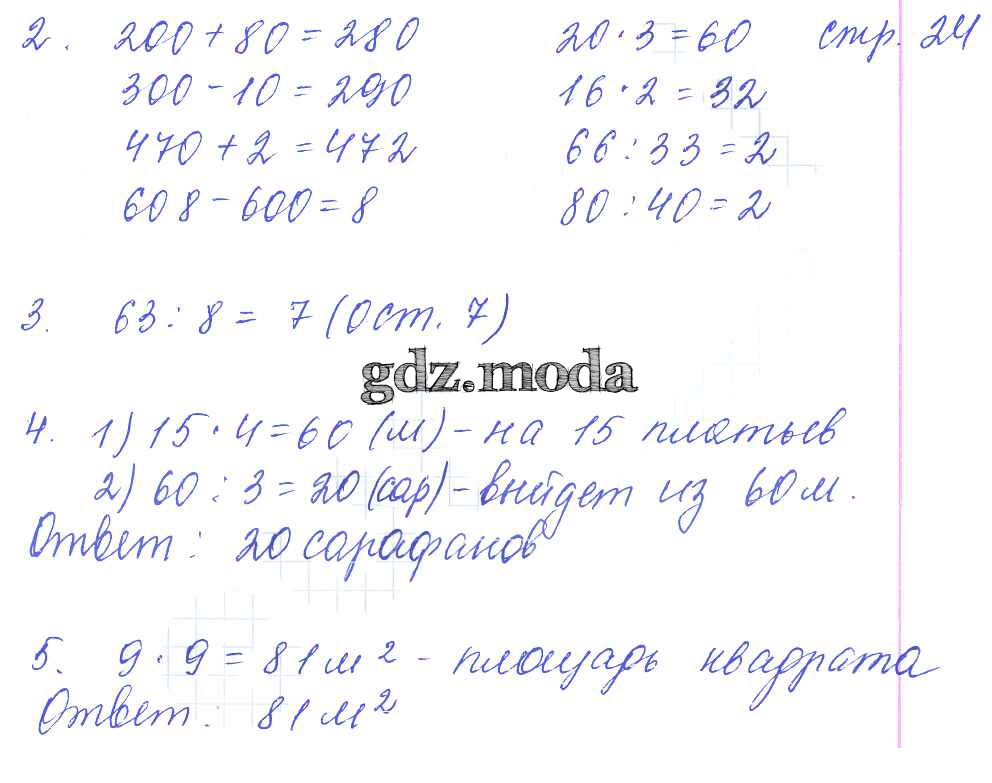 2. 200 + 80 = 280 20 · 3 = 60 стр. 24
300 - 10 = 290 16 · 2 = 32
470 + 2 = 472 66 : 33 = 2
608 - 600 = 8 80 : 40 = 2
3. 63 : 8 = 7 (ост. 7)
gdz.moda
4. 1) 15 · 4 = 60 (м) - на 15 платьев
2) 60 : 3 = 20 (сар) - выйдет из 60 м.
Ответ: 20 сарафанов
5. 9 · 9 = 81 м² - площадь квадрата
Ответ: 81 м²